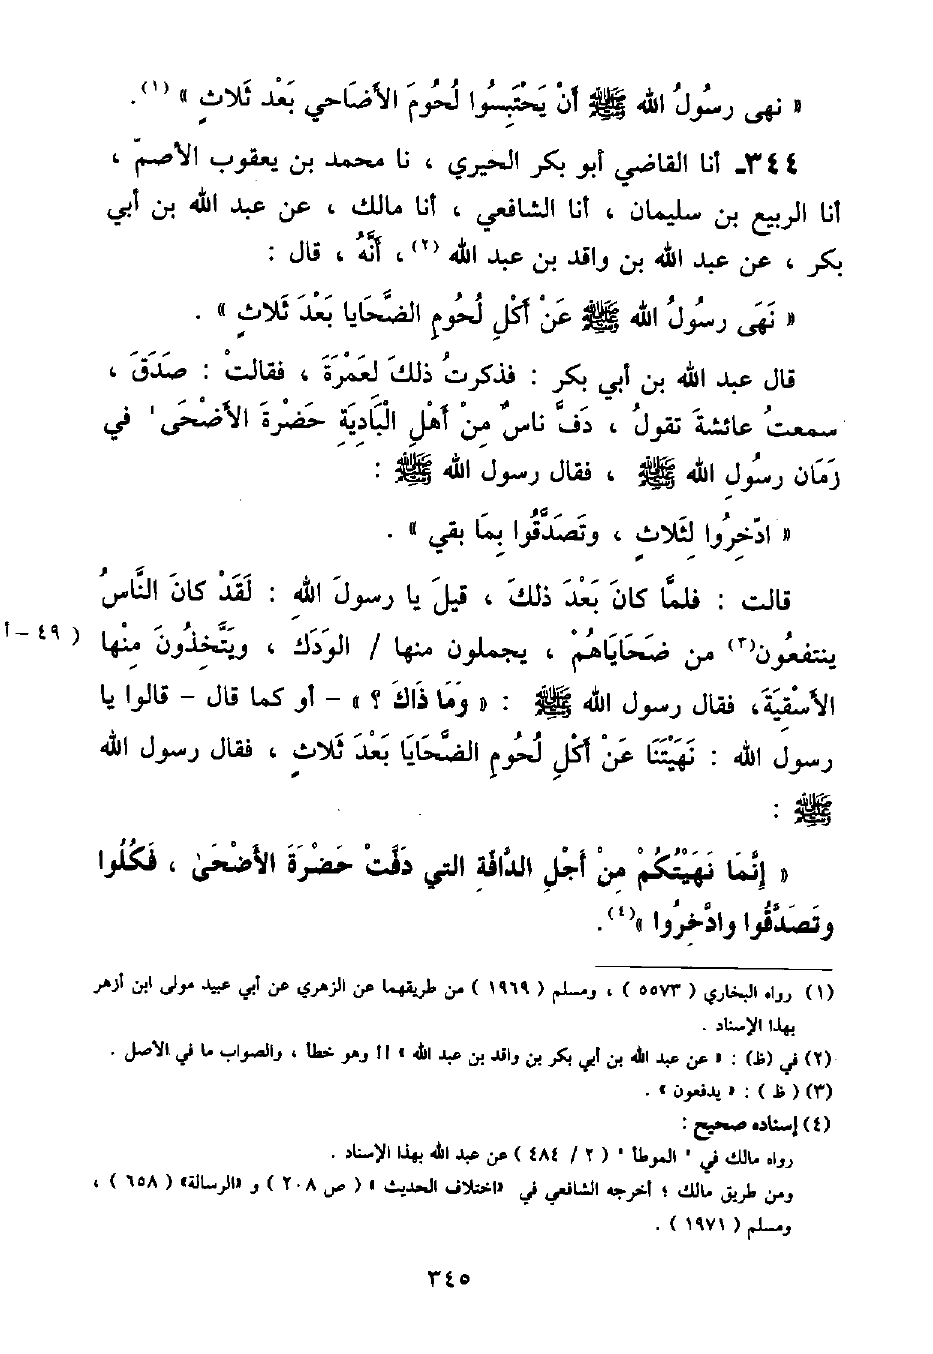 « نهى رسُولُ الله ﷺ أَنْ يَحْتَبِسُوا لُحُومَ الأَضَاحي بَعْد ثَلاثٍ » (١).
٣٤٤ـ أنا القاضي أبو بكر الحيري ، نا محمد بن يعقوب الأصمّ ،
أنا الربيع بن سليمان ، أنا الشافعي ، أنا مالك ، عن عبد الله بن أبي
بكر ، عن عبد الله بن واقد بن عبد الله (٢) ، أَنَّهُ ، قال :
« نَهَى رسُولُ الله ﷺ عَنْ أَكْلِ لُحُومِ الضَّحَايا بَعْدَ ثَلاثٍ » .
قال عبد الله بن أبي بكر : فذكرتُ ذلكَ لعَمْرَةَ ، فقالتْ : صدَقَ ،
سمعتُ عائشةَ تقولُ ، دَفَّ ناسٌ مِنْ أَهْلِ الْبَادِيَةِ حَضْرةَ الأَضْحَى ' في
زَمَان رسُولِ الله ﷺ ، فقال رسول الله ﷺ :
« ادّخِرُوا لِثَلاثٍ ، وتَصَدَّقُوا بِمَا بقي » .
قالت : فلمَّا كانَ بَعْدَ ذلكَ ، قيلَ يا رسولَ اللهِ : لَقَدْ كانَ النَّاسُ
ينتفعُون(٣) من ضَحَايَاهُمْ ، يجملون منها / الوَدَك ، ويَتَّخِذُونَ مِنْها ( ٤٩ – أ
الأَسْقِيَةَ، فقال رسول الله ﷺ : « وَمَا ذَاكَ ؟ » – أو كما قال – قالوا يا
رسول الله : نَهَيْتَنَا عَنْ أَكْلِ لُحُومِ الضَّحَايَا بَعْدَ ثَلاثٍ ، فقال رسول الله
ﷺ :
« إِنَّمَا نَهَيْتُكُمْ مِنْ أَجْلِ الدَّافَّةِ التي دَفَّتْ حَضْرَةَ الأَضْحَىٰ ، فَكُلُوا
وتَصَدَّقُوا وادَّخِرُوا »(٤).
(١) رواه البخاري ( ٥٥٧٣ ) ، ومسلم ( ١٩٦٩ ) من طريقهما عن الزهري عن أبي عبيد مولى ابن أزهر
بهذا الإسناد .
(٢) في (ظ) : « عن عبد الله بن أبي بكر بن واقد بن عبد الله » أ أ وهو خطأ ، والصواب ما في الأصل .
(٣) ( ظ ) : « يدفعون » .
(٤) إسناده صحيح :
رواه مالك في " الموطأ " ( ٢ / ٤٨٤ ) عن عبد الله بهذا الإسناد .
ومن طريق مالك ؛ أخرجه الشافعي في «اختلاف الحديث » ( ص ٢٠٨ ) و «الرسالة» ( ٦٥٨ ) ،
ومسلم ( ١٩٧١ ) .
٣٤٥